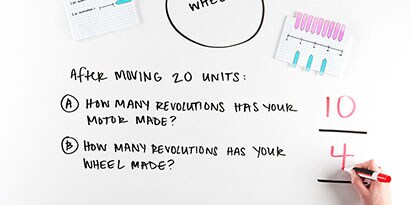 WHEEL
AFTER MOVING 20 UNITS:
A HOW MANY REVOLUTIONS HAS YOUR
MOTOR MADE?
10
B HOW MANY REVOLUTIONS HAS YOUR
WHEEL MADE?
4